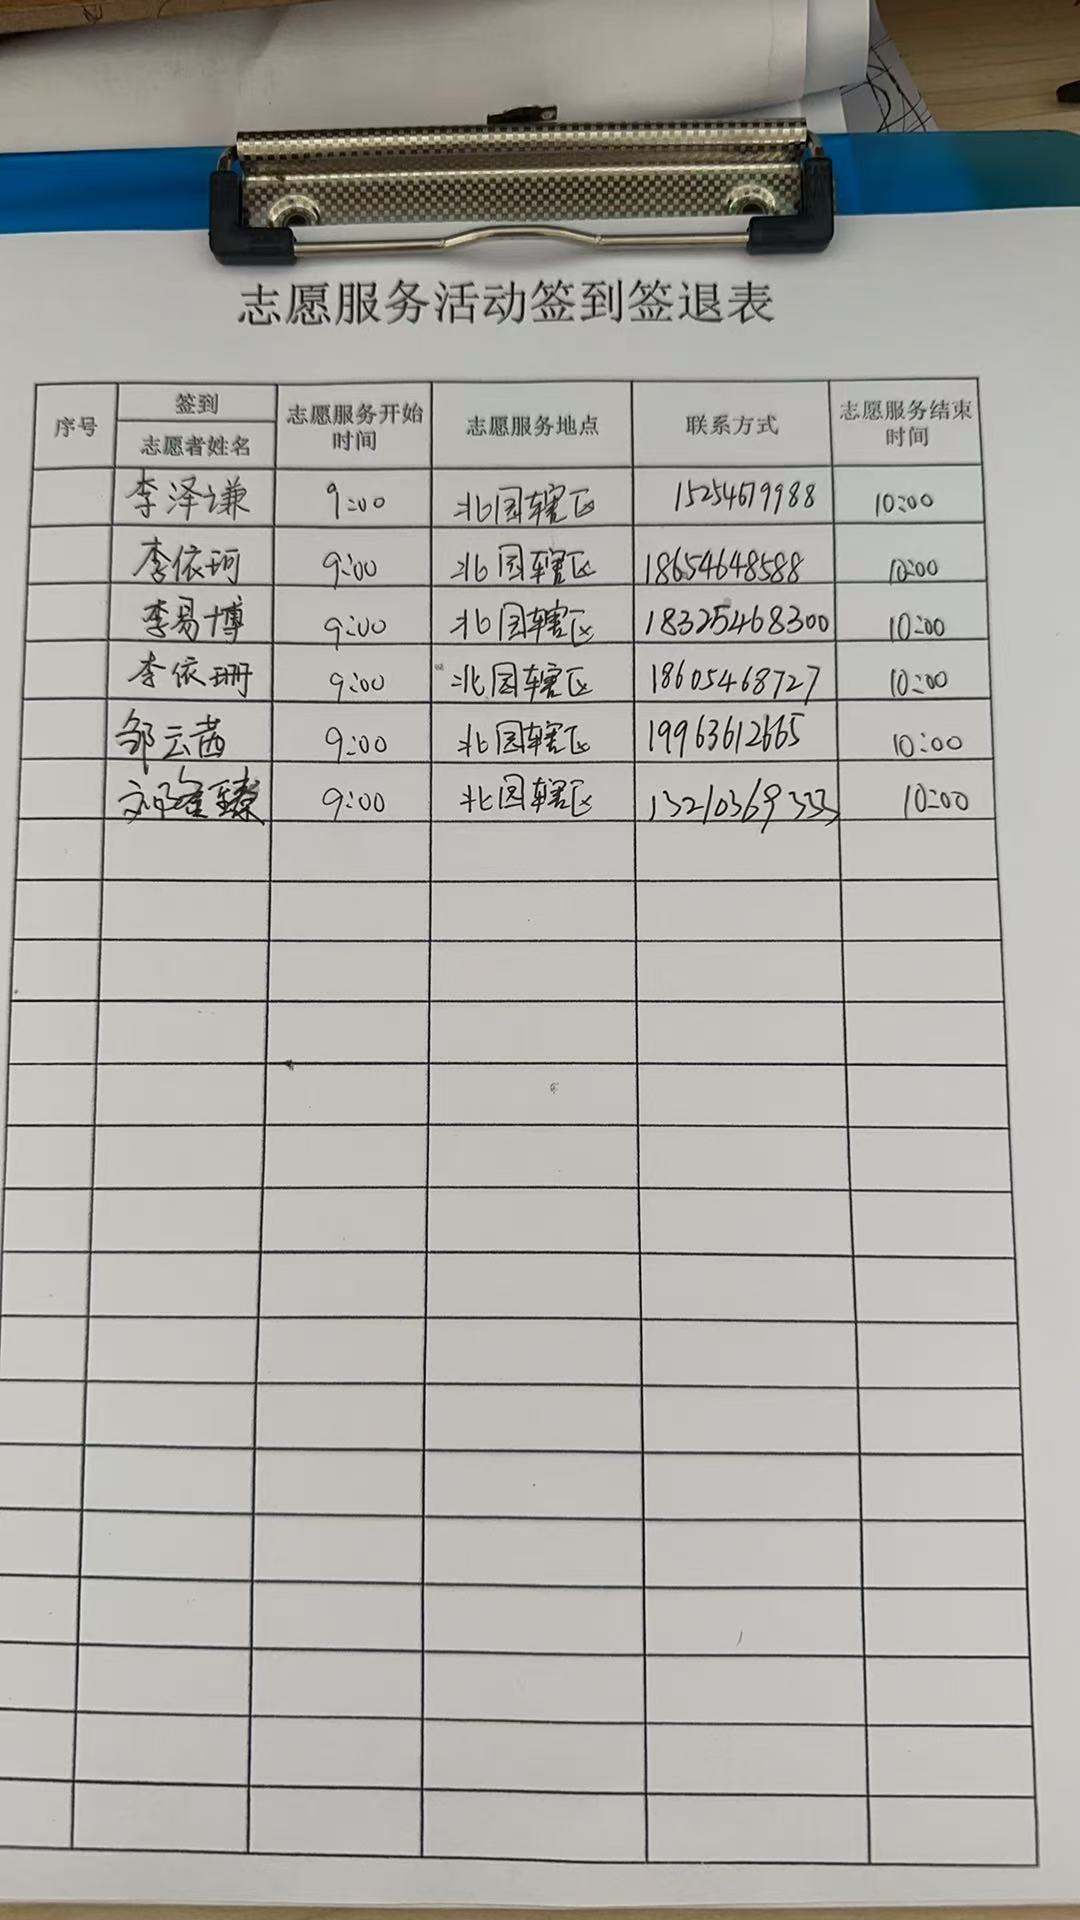 志愿服务活动签到签退表
序号 签到 志愿者姓名 志愿服务开始时间 志愿服务地点 联系方式 志愿服务结束时间
李泽谦 9:00 北园辖区 15254679988 10:00
李依珂 9:00 北园辖区 18654648588 10:00
李易博 9:00 北园辖区 18325468300 10:00
李依珊 9:00 北园辖区 18605468727 10:00
邹云茜 9:00 北园辖区 19963612665 10:00
9:00 北园辖区 13210369333 10:00